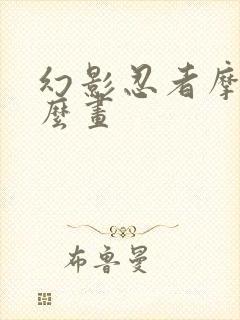 幻影忍者摩
麼畫
布魯曼